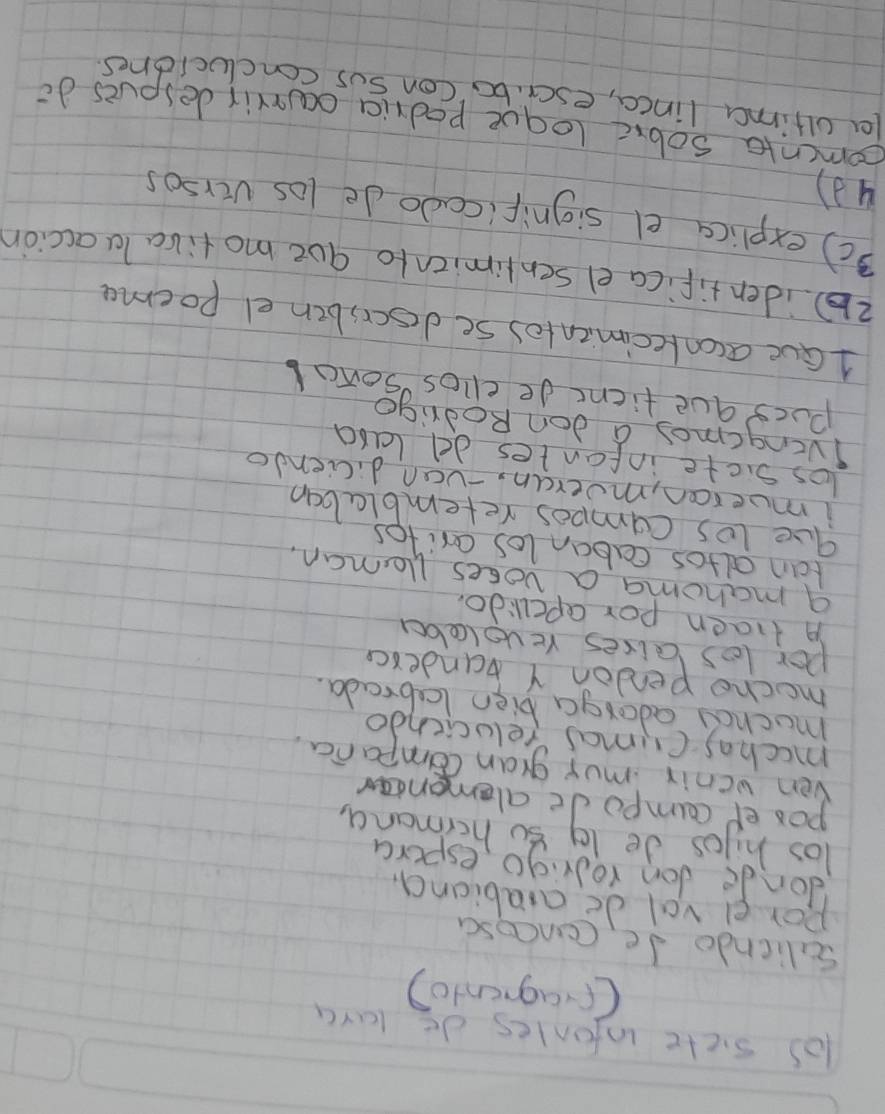 los siete infantes de lara
(fragrento)
saliendo de canicosa
por el val de arabiana,
donde don rodrigo espera
los hijos de la su hermana,
por el campo de alemenar
ven venir muy gran compaña,
muchas armas reluciendo
muchas adarga bien labrada.
mucho pendon y vandera
por los aires revolaba
A traen por apellido,
a mahoma a voces llaman,
tan altos caban los gritos
que los campos retemblaban
¡mueran, mueran, -van diciendo
los siete infantes del lara
¡vengemos a don Rodrigo
pues que tiene de ellos soña
1 Que acontecimientos se describen el poema
2b) identifica el sentimiento que motiva la acción
3c) explica el significado de los versos
4d)
comenta sobre loque podria ocurrir despues de
la ultima linea, escriba con sus concluciones.